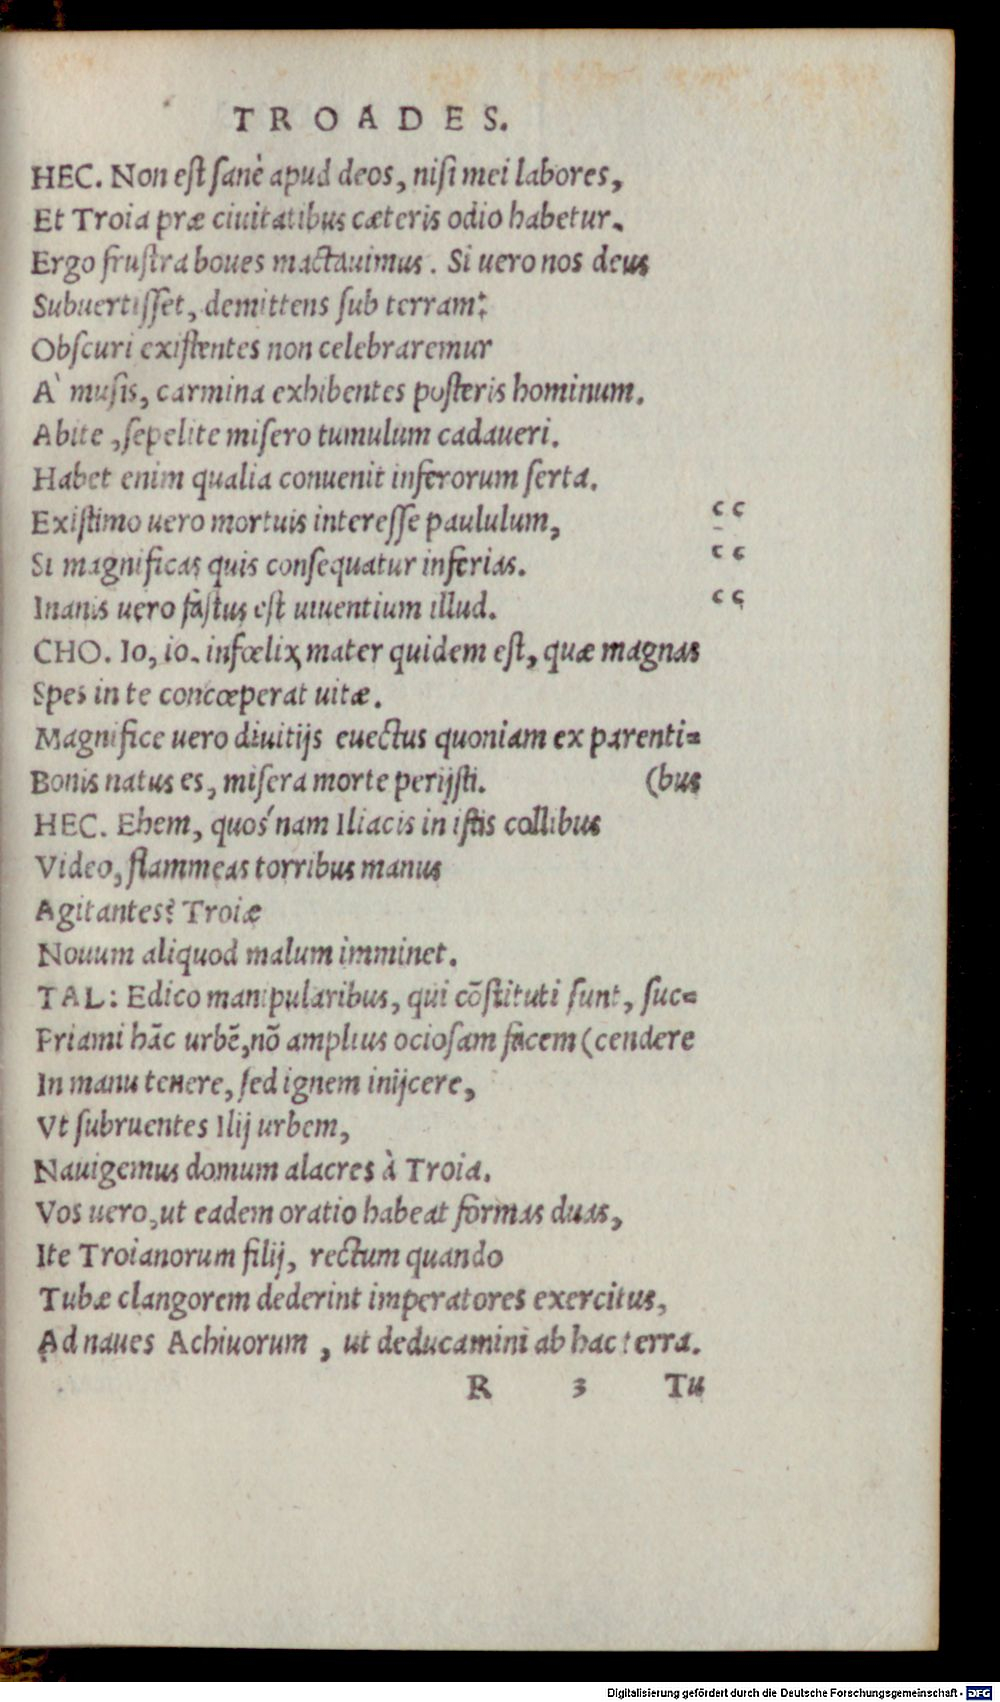 TROADES.
HEC. Non est sanè apud deos, nisi mei labores,
Et Troia præ ciuitatibus cæteris odio habetur.
Ergo frustra boues mactauimus. Si uero nos deus
Subuertisset, demittens sub terram:
Obscuri existentes non celebraremur
A` musis, carmina exhibentes posteris hominum.
Abite, sepelite misero tumulum cadaueri.
Habet enim qualia conuenit inferorum serta.
Existimo uero mortuis interesse paululum, cc
Si magnificas quis consequatur inferias. cc
Inanis uero fastus est uiuentium illud. cc
CHO. Io, io. infœlix mater quidem est, quæ magnas
Spes in te concœperat uitæ.
Magnifice uero diuitijs euectus quoniam ex parenti=
Bonis natus es, misera morte perijsti. (bus
HEC. Ehem, quos´nam Iliacis in istis collibus
Video, flammeas torribus manus
Agitantes? Troiæ
Nouum aliquod malum imminet.
TAL: Edico manipularibus, qui cōstituti sunt, suc=
Priami hāc urbē, nō amplius ociosam facem (cendere
In manu tenere, sed ignem inijcere,
Vt subruentes Ilij urbem,
Nauigemus domum alacres à Troia.
Vos uero, ut eadem oratio habeat formas duas,
Ite Troianorum filij, rectum quando
Tubæ clangorem dederint imperatores exercitus,
Ad naues Achiuorum, ut deducamini ab hac terra.
R 3 Tu
Digitalisierung gefördert durch die Deutsche Forschungsgemeinschaft - DFG